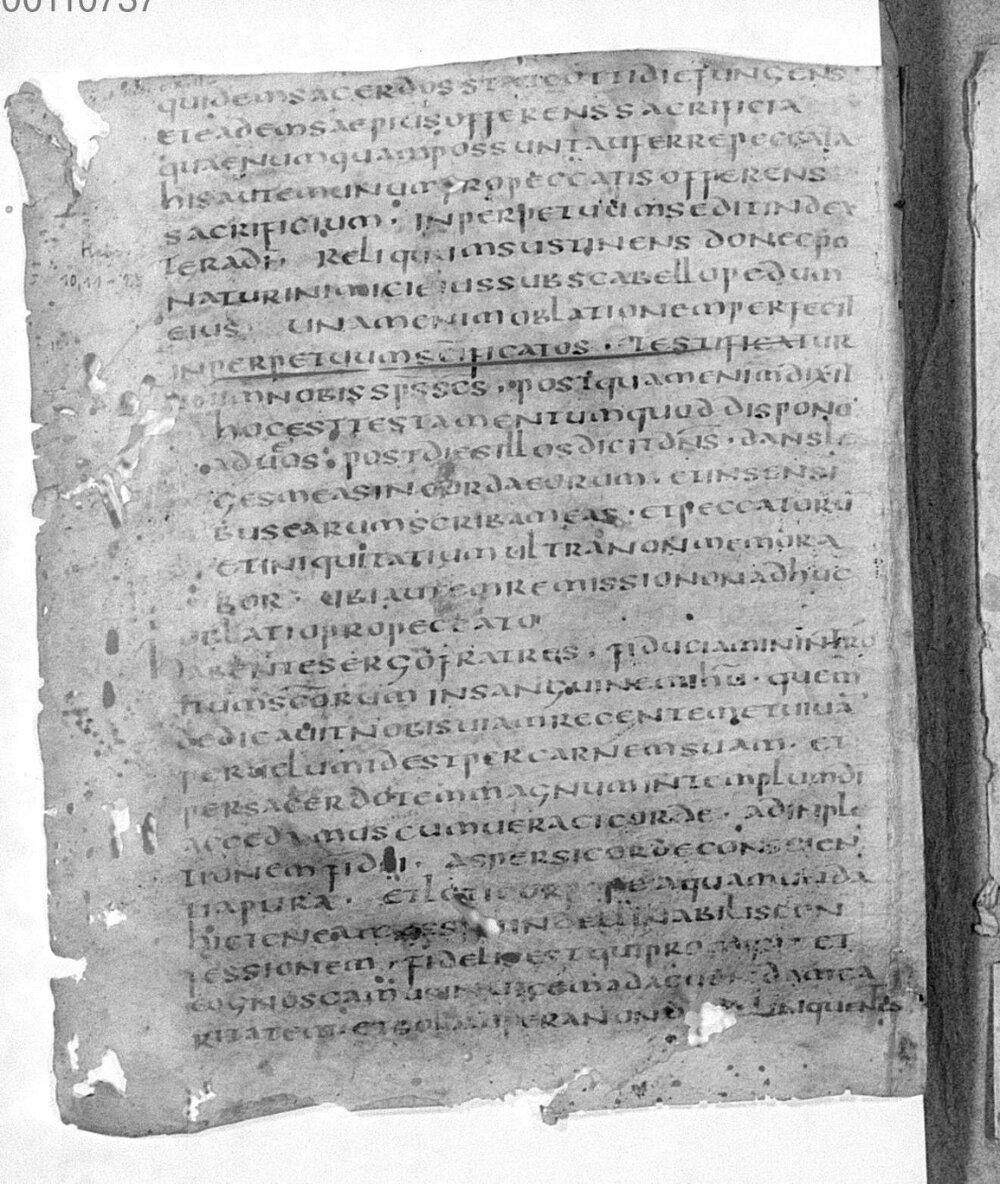 00110737
quidemsacerdosstatcottidiefungens
eteademsaepiusofferenssacrificia
quaenumquampossuntauferrepeccata
hisautemunumpropeccatisofferens
sacrificium · inperpetuumseditindex
teradi · reliquumsustinens donecpo
naturinimicieiussubscabellopedum
eius unamenimoblationemperfecit
inperpetuumscificatos · testificatur
nobisspsscs · postquamenimdixit
hocesttestamentumquoddispono
aduos · postdiesillosdicitdns · dansle
gesmeasincordaeorum · etinsensi
busearumscribameas · etpeccatorū
etiniquitatiumultranonmemora
bor · ubiautemremissiononadhuc
oblatiopropeccato
habentesergofratres · fiduciaminintro
itumscorum insanguinemihu · quem
dedicauitnobisuiamrecentemetuiuā
peruelumidestpercarnemsuam · et
persacerdotemmagnumintemplumdi
accedamuscumueracicorde · adinple
tionemfidei · aspersicordeconscien
tiapura · etloticorp aquamunda
indeclinabiliscon
fessionem · fidelisestqui et
ritatem